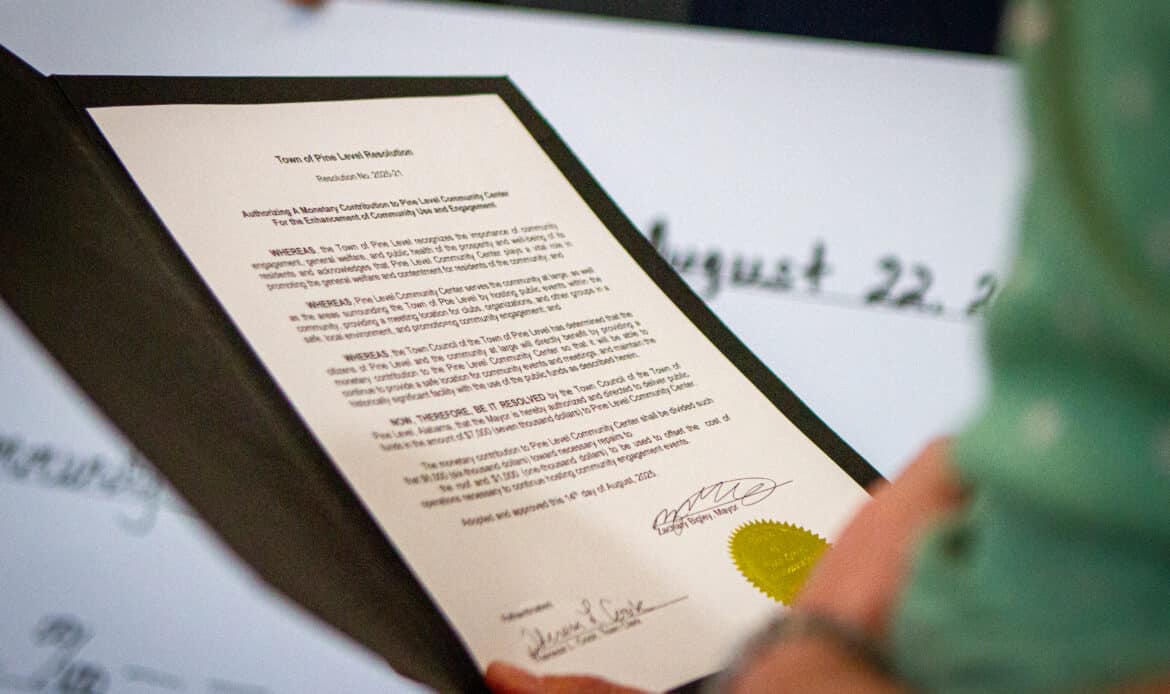 Town of Pine Level Resolution
Resolution No. 2025-21
Authorizing A Monetary Contribution to Pine Level Community Center
For the Enhancement of Community Use and Engagement
WHEREAS, the Town of Pine Level recognizes the importance of community
engagement, general welfare, and public health of the prosperity and well-being of its
residents and acknowledges that Pine Level Community Center plays a vital role in
promoting the general welfare and contentment for residents of the community; and
WHEREAS, Pine Level Community Center serves the community at large, as well
as the areas surrounding the Town of Pine Level by hosting public events within the
community, providing a meeting location for clubs, organizations, and other groups in a
safe, local environment, and promoting community engagement; and
WHEREAS, the Town Council of the Town of Pine Level has determined that the
citizens of Pine Level and the community at large will directly benefit by providing a
monetary contribution to the Pine Level Community Center so that it will be able to
continue to provide a safe location for community events and meetings, and maintain the
historically significant facility with the use of the public funds as described herein.
NOW, THEREFORE, BE IT RESOLVED by the Town Council of the Town of
Pine Level, Alabama, that the Mayor is hereby authorized and directed to deliver public
funds in the amount of $7,000 (seven thousand dollars) to Pine Level Community Center.
The monetary contribution to Pine Level Community Center shall be divided such
that $6,000 (six-thousand dollars) toward necessary repairs to
the roof and $1,000 (one-thousand dollars) to be used to offset the cost of
operations necessary to continue hosting community engagement events.
Adopted and approved this 14th day of August, 2025.
Zachary Bigley, Mayor
Cook, Town Clerk
August 22, 2